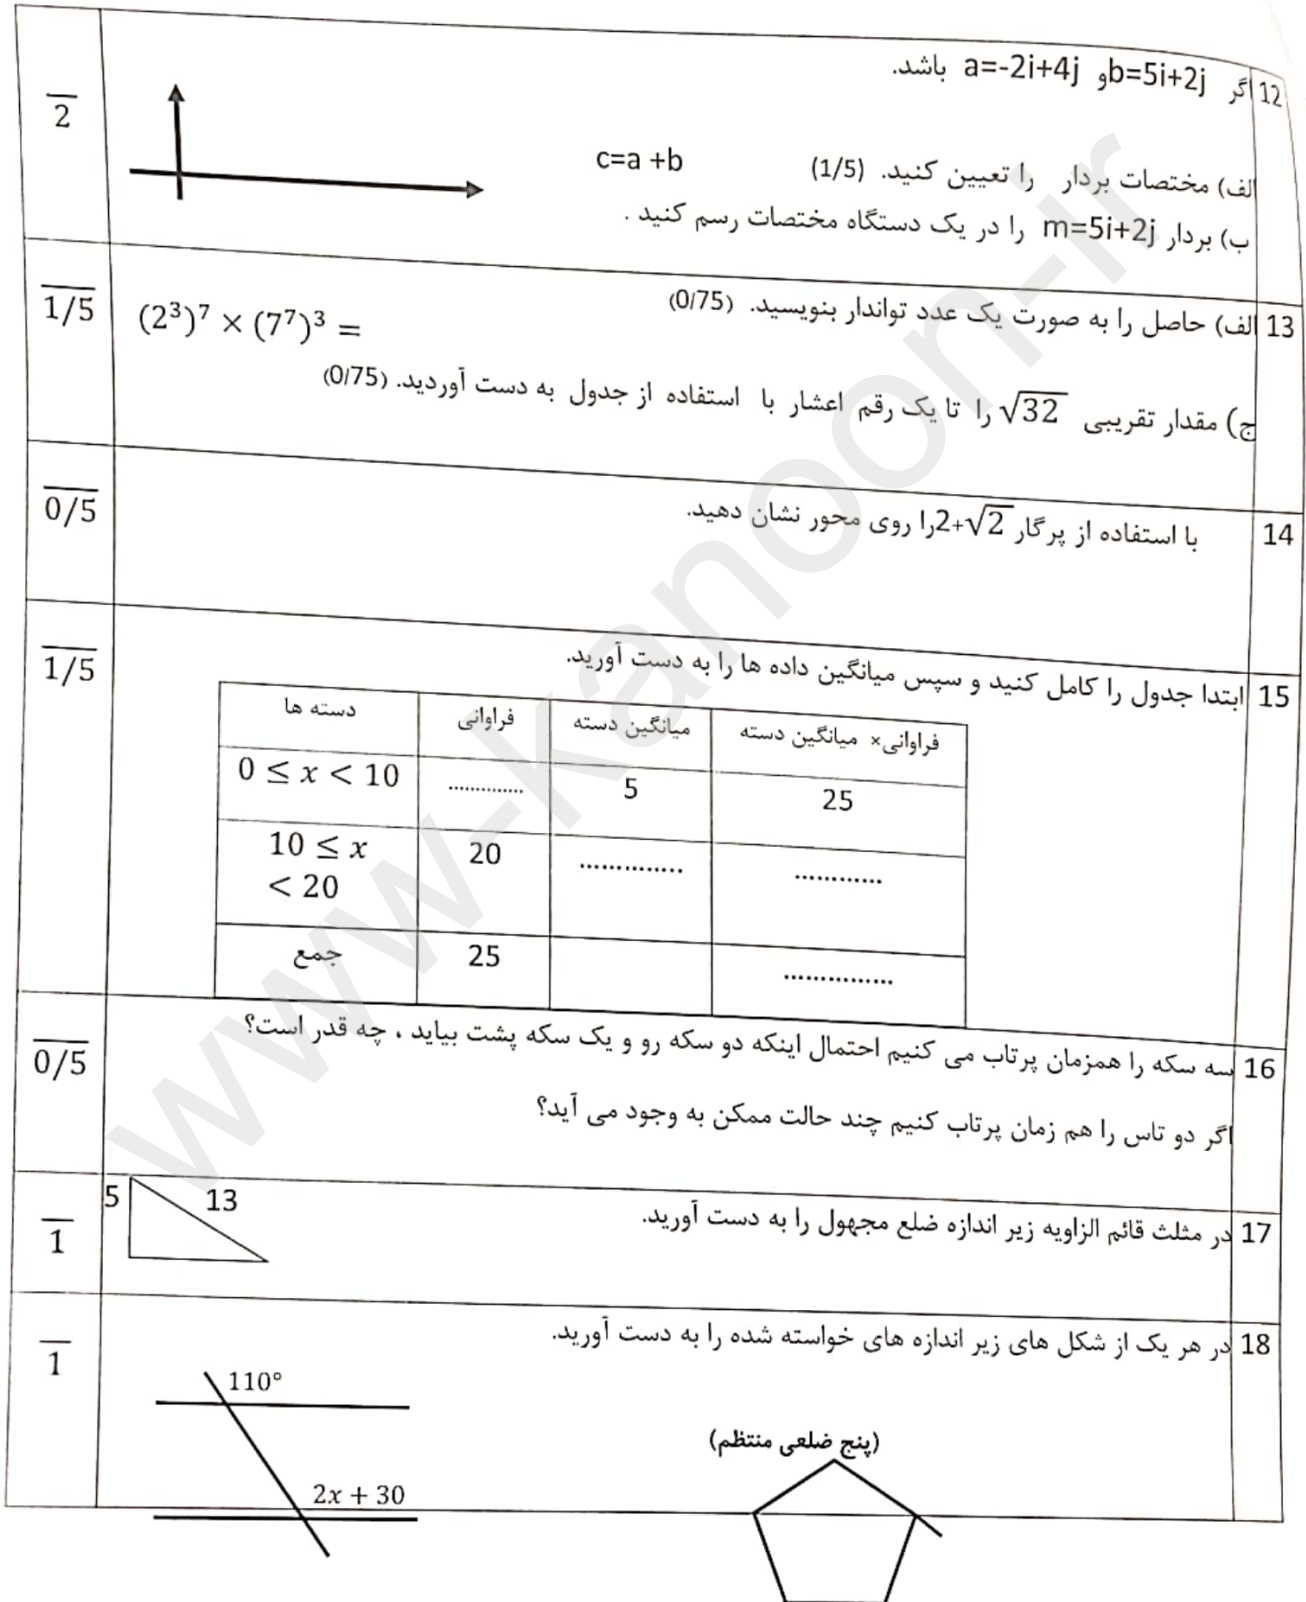 12 اگر b=5i+2j و a=-2i+4j باشد.
2
الف) مختصات بردار c=a +b را تعیین کنید. (1/5)
ب) بردار m=5i+2j را در یک دستگاه مختصات رسم کنید .
13 الف) حاصل را به صورت یک عدد تواندار بنویسید. (0/75)
1/5
(2³)⁷ × (7⁷)³ =
ج) مقدار تقریبی √32 را تا یک رقم اعشار با استفاده از جدول به دست آوردید. (0/75)
14 با استفاده از پرگار 2+√2 را روی محور نشان دهید.
0/5
15 ابتدا جدول را کامل کنید و سپس میانگین داده ها را به دست آورید.
1/5
دسته ها فراوانی میانگین دسته فراوانی× میانگین دسته
0 ≤ x < 10 .............. 5 25
10 ≤ x
< 20 20 .............. ............
جمع 25 ...............
16 سه سکه را همزمان پرتاب می کنیم احتمال اینکه دو سکه رو و یک سکه پشت بیاید ، چه قدر است؟
0/5
اگر دو تاس را هم زمان پرتاب کنیم چند حالت ممکن به وجود می آید؟
17 در مثلث قائم الزاویه زیر اندازه ضلع مجهول را به دست آورید.
5 13
1
18 در هر یک از شکل های زیر اندازه های خواسته شده را به دست آورید.
1
110°
(پنج ضلعی منتظم)
2x + 30
www-kanoon-ir